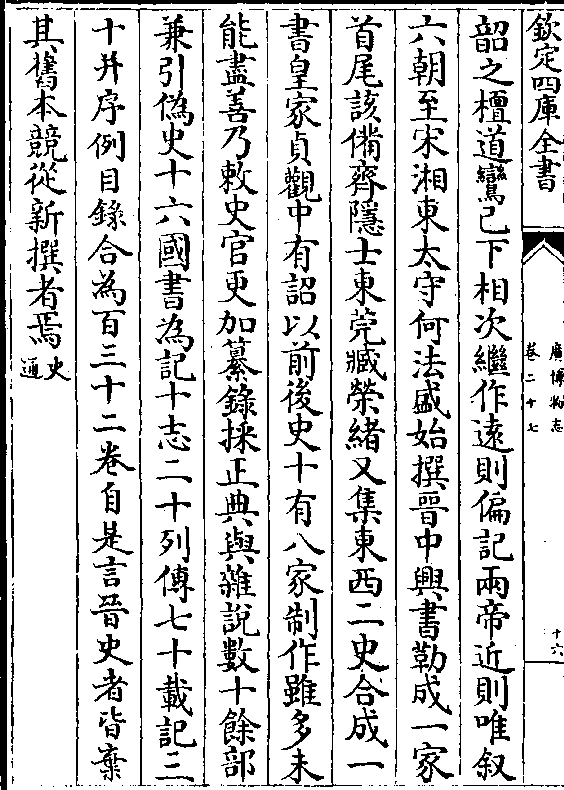 欽定四庫全書
廣博物志
卷二十七
十六
韶之檀道鸞已下相次繼作遠則偏記兩帝近則唯叙
六朝至宋湘東太守何法盛始撰晉中興書勒成一家
首尾該備齊隱士東莞臧榮緒又集東西二史合成一
書皇家貞觀中有詔以前後史十有八家制作雖多未
能盡善乃敕史官更加纂錄採正典與雜說數十餘部
兼引偽史十六國書為記十志二十列傳七十載記三
十并序例目錄合為百三十二卷自是言晉史者皆棄
其舊本競從新撰者焉史通